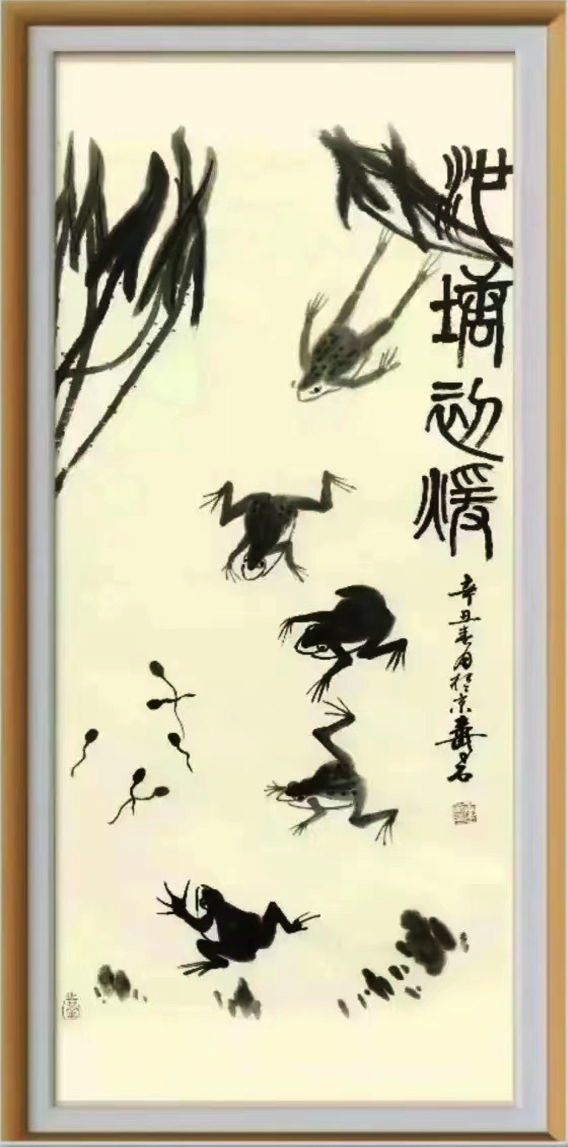 池塘初暖
辛丑春月於京